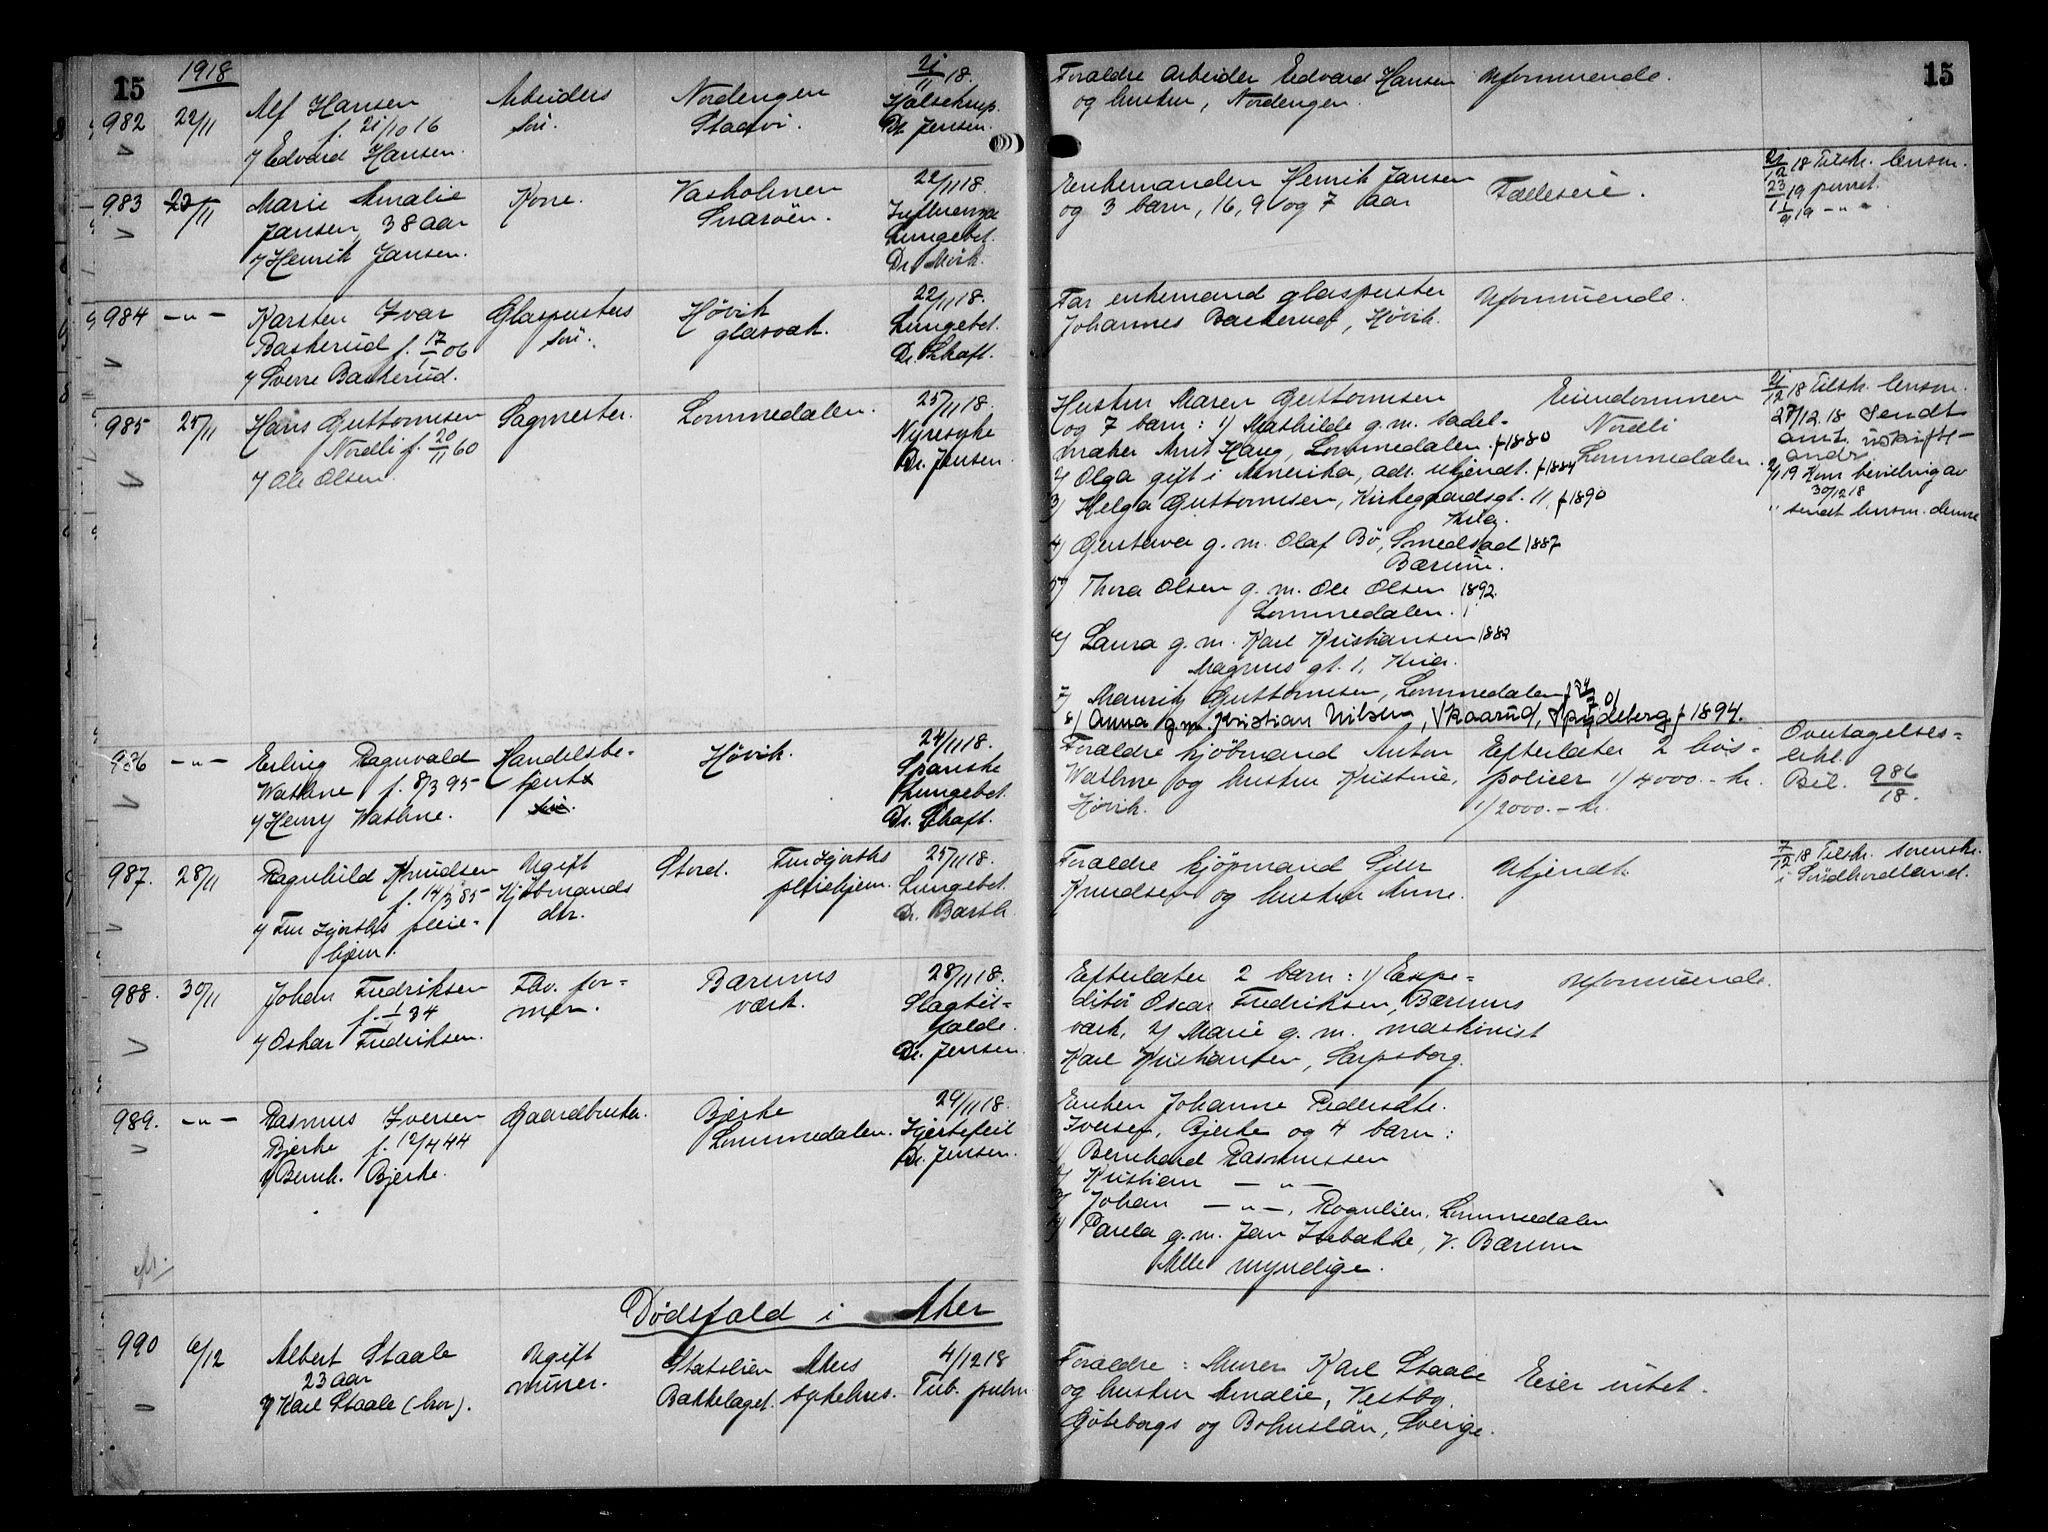 15
1918
982
22/11
Alf Hansen
f. 21/10 16
v/ Edvard Hansen.
Arbeiders
sön.
Nordengen
Staavi.
21/11 18.
Halsetrup.
Dr. Jensen.
Forældre arbeider Edvard Hansen
og hustru, Nordengen.
Uformuende.
15
983
23/11
Marie Amalie
Jansen, 38 aar
v/ Henrik Jansen.
Kone.
Vasholmen
Snaröen.
22/11 18.
Influenza
Lungebet.
Enkemanden Henrik Jansen
og 3 barn, 16, 9 og 7 aar
Fælleseie.
21/12 18 Tilskr. lensm.
23/1 19 purret.
1/9 19 -"-
984
-"-
Karsten Ivar
Bakkerud f. 17/1 06
v/ Sverre Bakkerud.
Glaspusters
sön.
Høvik
glasværk.
22/11 18.
Lungebet.
Dr. Schaft.
Far enkemand glaspuster
Johannes Bakkerud, Høvik.
Uformuende.
985
25/11
Hans Guttormsen
Nordli f. 20/11 60
v/ Ole Olsen.
Sagmester.
Lommedalen.
25/11 18.
Nyresyke
Dr. Jensen.
Hustru Maren Guttormsen
og 7 barn: 1/ Mathilde g.m. sadel-
maker Anut Haug, Lommedalen. f 1880
2/ Olga gift i Amerika, adr. ukjendt. f 1884
3/ Helga Guttormsen, Kirkegaardsgt. 11, f 1890
Kria.
4/ Gustava g.m. Olaf Bö, Smedstad 1887
Bærum.
5/ Thora Olsen g.m. Ole Olsen 1892
Lommedalen.
6/ Laura g.m. Karl Kristiansen 1882
Magnus gt. 1, Kria.
7/ Mauritz Guttormsen, Lommedalen
8/ Anna g.m. Kristian Nilsen, Skaarud, Spydeberg f 1894.
Eiendommen
Nordli
Lommedalen.
21/12 18 Tilskr. lensm.
27/12 18 Sendt
amt. uskifte-
andr.
2/1 19 Kom bevilling av
30/12 18
" sendt lensm. denne
986
-"-
Erling Ragnvald
Wathne f. 8/3 95
v/ Henry Wathne.
Handelsbe-
tjent
Høvik.
24/11 18.
Spanske
Lungebet.
Dr. Schaft.
Forældre kjöbmand Anton
Wathne og hustru Kristine,
Høvik.
Efterlater 2 livs-
policer 1/ 4000.- kr.
1/ 2000.- kr.
Overtagelses-
erkl.
Bil. 986/18.
987.
28/11
Ragnhild Knudsen
f. 14/3 85
v/ Fru Hjorths pleie-
hjem.
Ugift
Kjöbmands
dtr.
Stord.
Fru Hjorths
pleiehjem.
25/11 18.
Lungebet.
Dr. Barth.
Forældre kjöpmand Sjur
Knudsen og hustru Anne.
Ukjendt.
7/12 18 Tilskr. sorenskr.
i Söndhordland.
988.
30/11
Johan Fredriksen
f. 1/1 34
v/ Oskar Fredriksen.
Fhv. for-
mer.
Bærums
værk.
28/11 18.
Slagtil-
fælde.
Dr. Jensen.
Efterlater 2 barn: 1/ Expe-
ditör Oscar Fredriksen, Bærums
værk, 2/ Marie g.m. maskinist
Karl Kristiansen, Sarpsborg.
Uformuende.
989.
-"-
Rasmus Iversen
Bjerke f. 12/4 44
v/ Bernh. Bjerke.
Gaardbruker.
Bjerke
Lommedalen.
29/11 18.
Hjertefeil
Dr. Jensen.
Enken Johanne Pedersdtr.
Iversen, Bjerke og 4 barn:
1/ Bernhard Rasmussen
2/ Kristian -"-
3/ Johan -"-, Rognlien, Lommedalen
4/ Paula g.m. Jan Isebakke, V. Bærum
Alle myndige.
Dödsfald i Aker
990
6/12
Albert Staale
23 aar
v/ Karl Staale (bror).
Ugift
murer.
Statslien
Bakkelaget.
Akers
sykehus.
4/12 18
Tub. pulm
Forældre: Murer Karl Staale
og hustru Amalie, Vestby,
Göteborgs og Bohuslän, Sverige.
Eier intet.